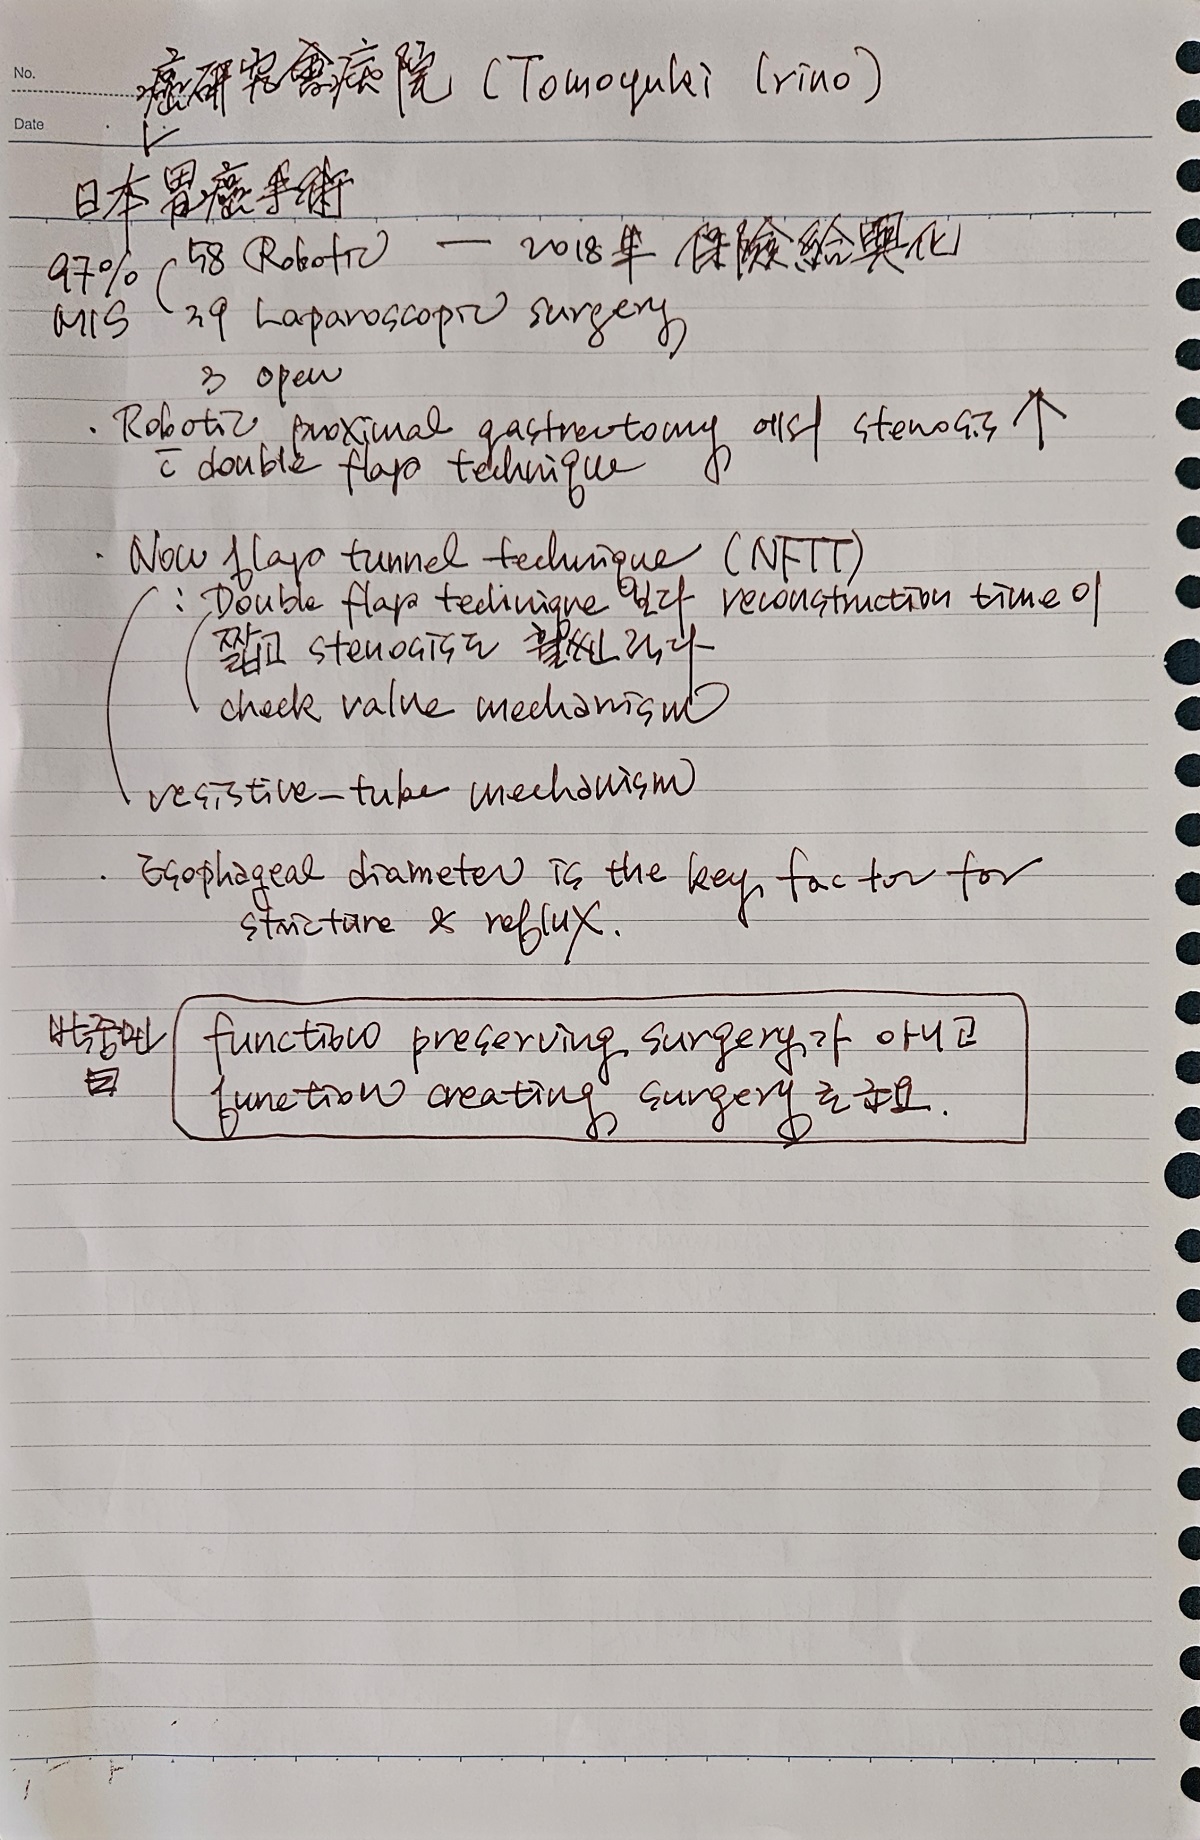 No.
癌研究會病院 (Tomoyuki Irino)
Date
日本胃癌手術
97% 58 Robotic — 2018年 保險給與化
MIS 39 Laparoscopic surgery
3 open
· Robotic proximal gastrectomy 에서 stenosis ↑
c̄ double flap technique
· Now flap tunnel technique (NFTT)
: Double flap technique 보다 reconstruction time이
짧고 stenosis도 훨씬 적다
check value mechanism
resistive-tube mechanism
· Esophageal diameter is the key factor for
stricture & reflux.
function preserving surgery가 아니고
function creating surgery